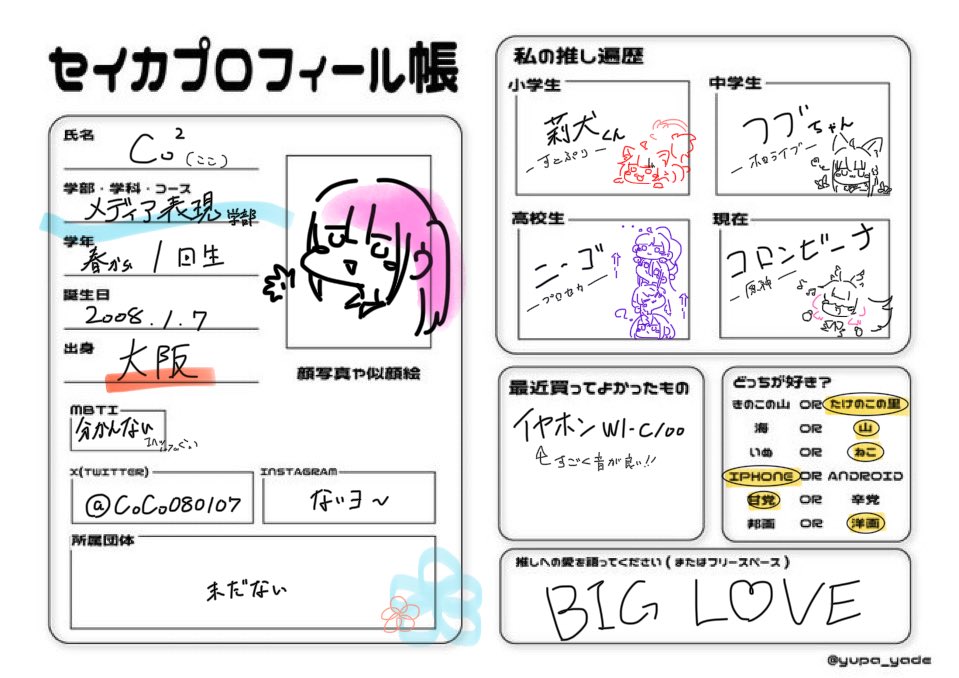 セイカプロフィール帳
氏名
Co²(ここ)
学部・学科・コース
メディア表現学部
学年
春から1回生
誕生日
2008.1.7
出身
大阪
顔写真や似顔絵
MBTI
分かんない
X(TWITTER)
@CoCo080107
INSTAGRAM
ないヨ〜
所属団体
まだない
私の推し遍歴
小学生
莉犬くん
-すとぷり-
中学生
フブちゃん
-ホロライブ-
高校生
ニーゴ
-プロセカ-
現在
コロンビーナ
-原神-
最近買ってよかったもの
イヤホン WI-C100
すごく音が良い!!
どっちが好き?
きのこの山 OR たけのこの里
海 OR 山
いぬ OR ねこ
IPHONE OR ANDROID
甘党 OR 辛党
邦画 OR 洋画
推しへの愛を語ってください(またはフリースペース)
BIG LOVE
@yupa_yade